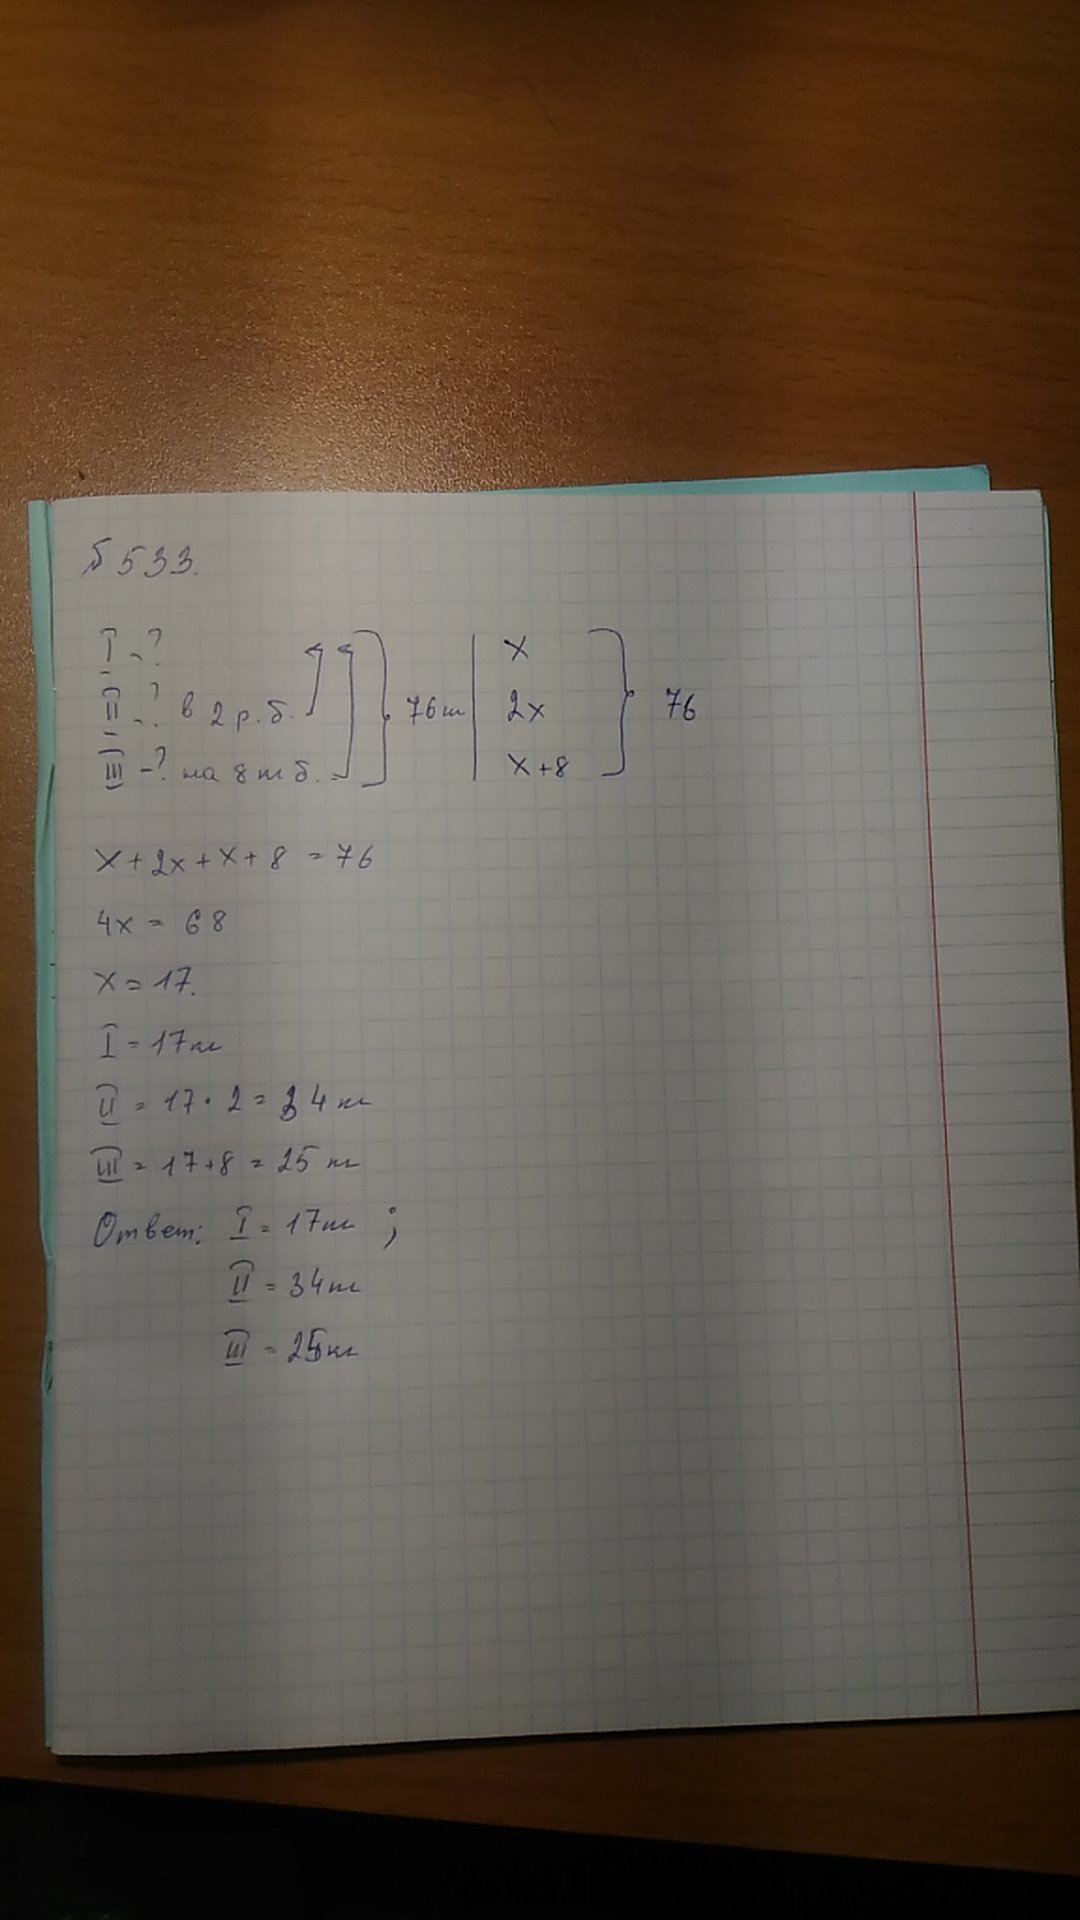 № 533.
I - ?
II - ? в 2 р. б.
III - ? на 8 т б.
} 76 т | x
2x
x + 8
} 76
x + 2x + x + 8 = 76
4x = 68
x = 17.
I = 17 кг
II = 17 · 2 = 34 кг
III = 17 + 8 = 25 кг
Ответ: I = 17 кг ;
II = 34 кг
III = 25 кг